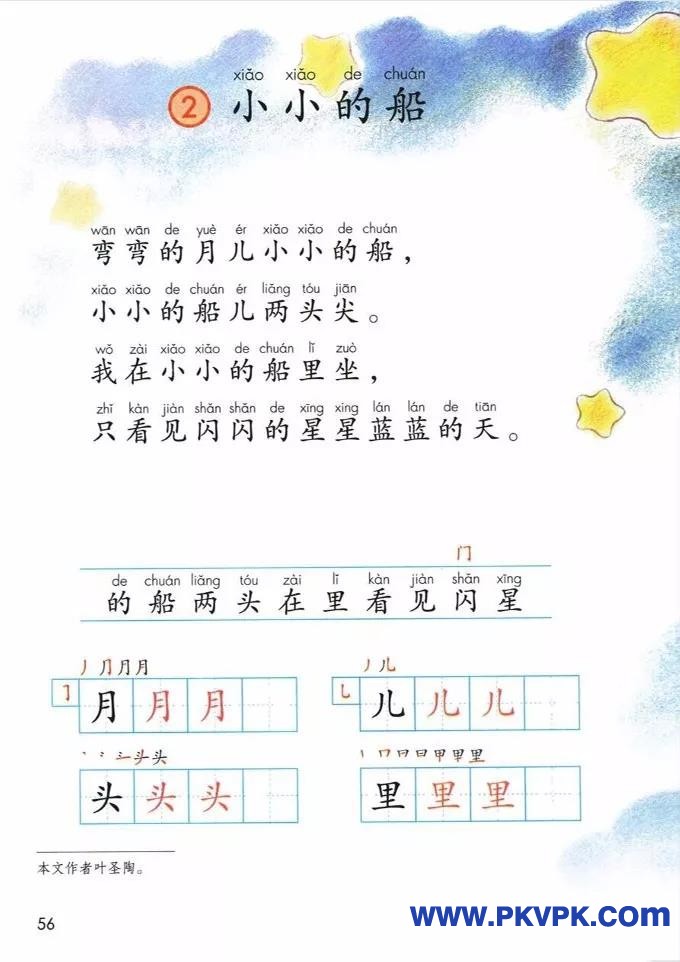 xiǎo xiǎo de chuán
2 小小的船
wān wān de yuè ér xiǎo xiǎo de chuán
弯弯的月儿小小的船，
xiǎo xiǎo de chuán ér liǎng tóu jiān
小小的船儿两头尖。
wǒ zài xiǎo xiǎo de chuán lǐ zuò
我在小小的船里坐，
zhǐ kàn jiàn shǎn shǎn de xīng xing lán lán de tiān
只看见闪闪的星星蓝蓝的天。
门
de chuán liǎng tóu zài lǐ kàn jiàn shǎn xīng
的船两头在里看见闪星
丿 ⺆ 月 月
㇆ 月 月 月
丿 儿
乚 儿 儿 儿
头 头
头 头 头
丨 冂 日 日 甲 甲 里
里 里 里
本文作者叶圣陶。
56
www.PKVPK.com